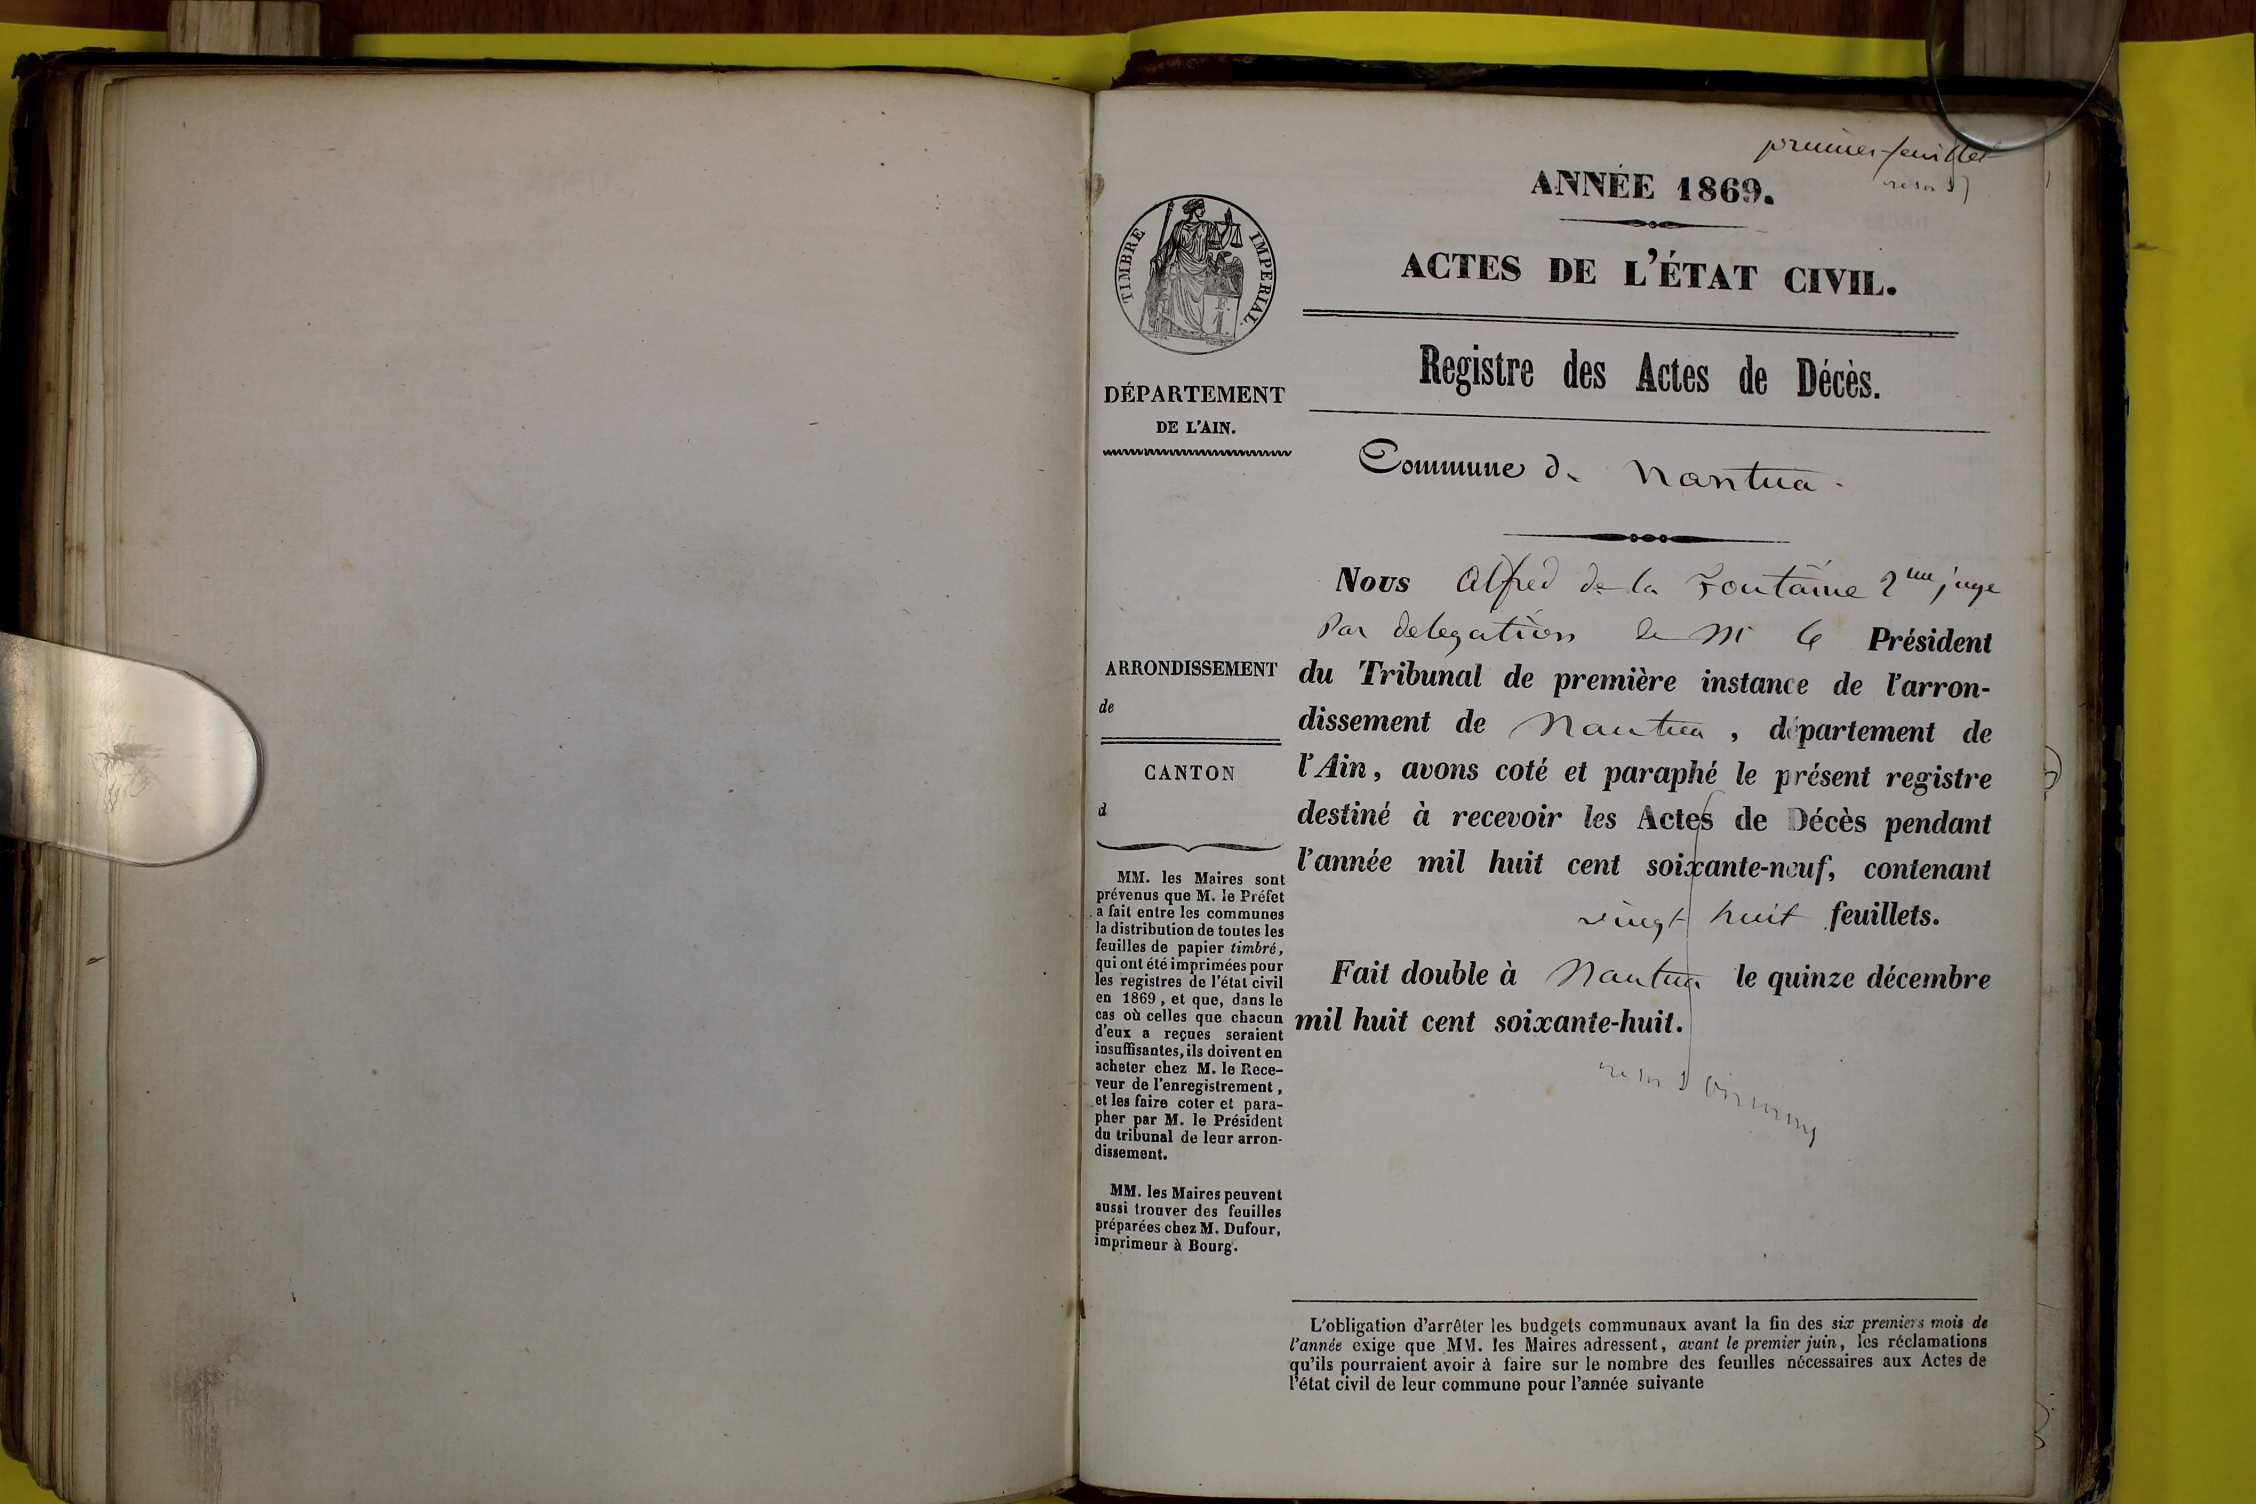 premier feuillet
ANNÉE 1869.
ACTES DE L'ÉTAT CIVIL.
Registre des Actes de Décès.
TIMBRE IMPERIAL.
DÉPARTEMENT
DE L'AIN.
Commune de Nantua.
Nous Alfred de la Fontaine 2me juge
Par delegation de Mr le Président
du Tribunal de première instance de l'arron-
dissement de Nantua, département de
l'Ain, avons coté et paraphé le présent registre
destiné à recevoir les Actes de Décès pendant
l'année mil huit cent soixante-neuf, contenant
vingt huit feuillets.
Fait double à Nantua le quinze décembre
mil huit cent soixante-huit.
ARRONDISSEMENT
de
CANTON
d
MM. les Maires sont
prévenus que M. le Préfet
a fait entre les communes
la distribution de toutes les
feuilles de papier timbré,
qui ont été imprimées pour
les registres de l'état civil
en 1869, et que, dans le
cas où celles que chacun
d'eux a reçues seraient
insuffisantes, ils doivent en
acheter chez M. le Rece-
veur de l'enregistrement,
et les faire coter et para-
pher par M. le Président
du tribunal de leur arron-
dissement.
MM. les Maires peuvent
aussi trouver des feuilles
préparées chez M. Dufour,
imprimeur à Bourg.
L'obligation d'arrêter les budgets communaux avant la fin des six premiers mois de
l'année exige que MM. les Maires adressent, avant le premier juin, les réclamations
qu'ils pourraient avoir à faire sur le nombre des feuilles nécessaires aux Actes de
l'état civil de leur commune pour l'année suivante